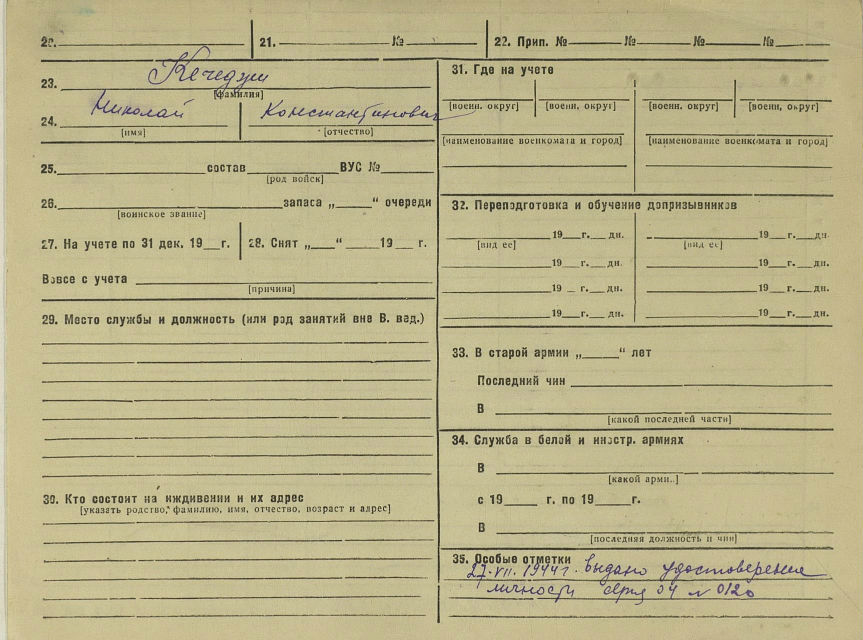 20. 21. № 22. Прип. № № № №
23. Кечеджи
[фамилия]
24. Николай Константинович
[имя] [отчество]
25. состав ВУС №
[род войск]
26. запаса „ “ очереди
[воинское звание]
27. На учете по 31 дек. 19 г. 28. Снят „ “ 19 г.
Вовсе с учета
[причина]
29. Место службы и должность (или род занятий вне В. вед.)
30. Кто состоит на иждивении и их адрес
[указать родство, фамилию, имя, отчество, возраст и адрес]
31. Где на учете
[военн. округ] [военн. округ] [военн. округ] [военн. округ]
[наименование военкомата и город] [наименование военкомата и город]
32. Переподготовка и обучение допризывников
19 г. дн. 19 г. дн.
[вид ее] [вид ее]
19 г. дн. 19 г. дн.
19 г. дн. 19 г. дн.
19 г. дн. 19 г. дн.
33. В старой армии „ “ лет
Последний чин
В
[какой последней части]
34. Служба в белой и иностр. армиях
В
[какой арми..]
с 19 г. по 19 г.
В
[последняя должность и чин]
35. Особые отметки
27.VII.1944г. выдано удостоверение
личности серия 04 № 0120